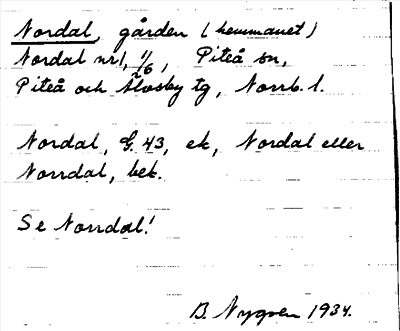 Nordal, gården (hemmanet)
Nordal nr 1, Piteå sn,
Piteå och Älvsby tg, Norrb. l.
Nordal, G. 43, ek, Nordal eller
Norrdal, bek.
Se Norrdal!
B. Nygren 1934.